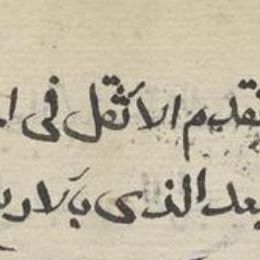 تقدم الاثقل فى ا
بعد الذى بالار